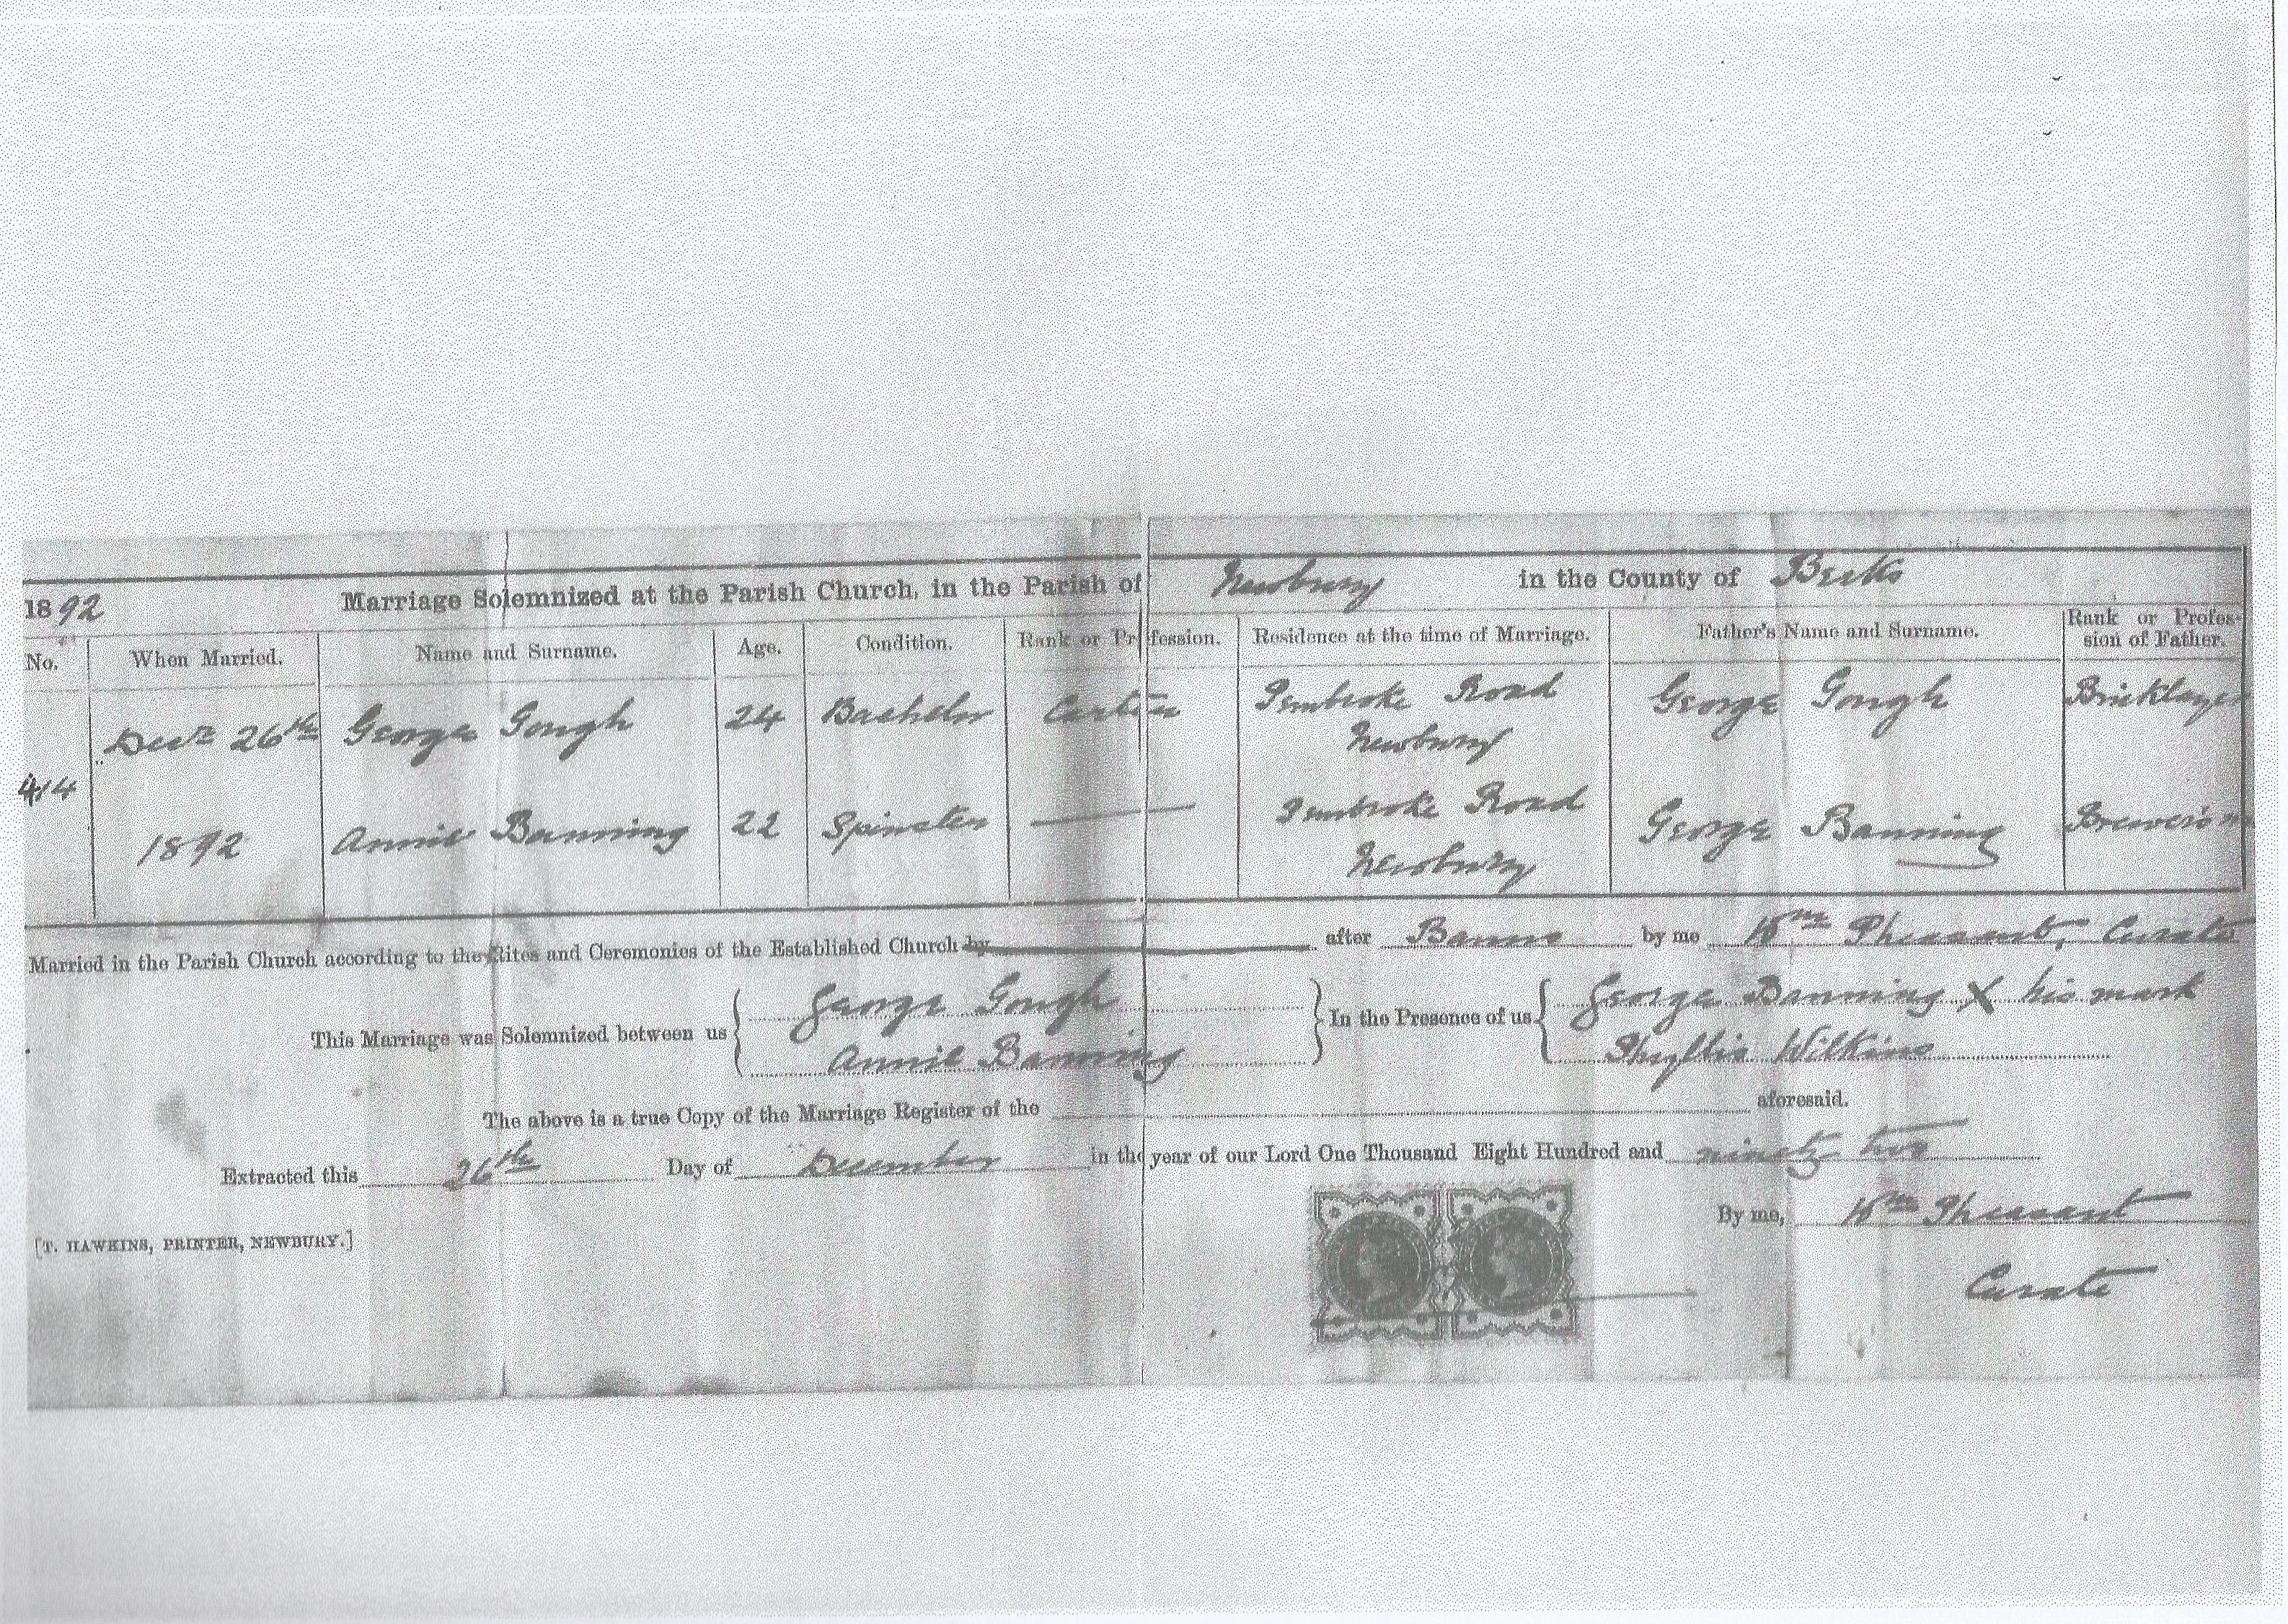 1892 Marriage Solemnized at the Parish Church, in the Parish of Newbury in the County of Berks
No. When Married. Name and Surname. Age. Condition. Rank or Profession. Residence at the time of Marriage. Father's Name and Surname. Rank or Profes-
sion of Father.
Decr 26th George Gough 24 Bachelor Carter Pembroke Road George Gough Bricklayer
Newbury
414
1892 Annie Banning 22 Spinster — Pembroke Road George Banning Brewer's
Newbury
Married in the Parish Church according to the Rites and Ceremonies of the Established Church by after Banns by me Wm Pheasant, Curate
This Marriage was Solemnized between us George Gough In the Presence of us George Banning X his mark
Annie Banning Phyllis Wilkins
The above is a true Copy of the Marriage Register of the aforesaid.
Extracted this 26th Day of December in the year of our Lord One Thousand Eight Hundred and ninety two
By me, Wm Pheasant
[T. HAWKINS, PRINTER, NEWBURY.]
Curate